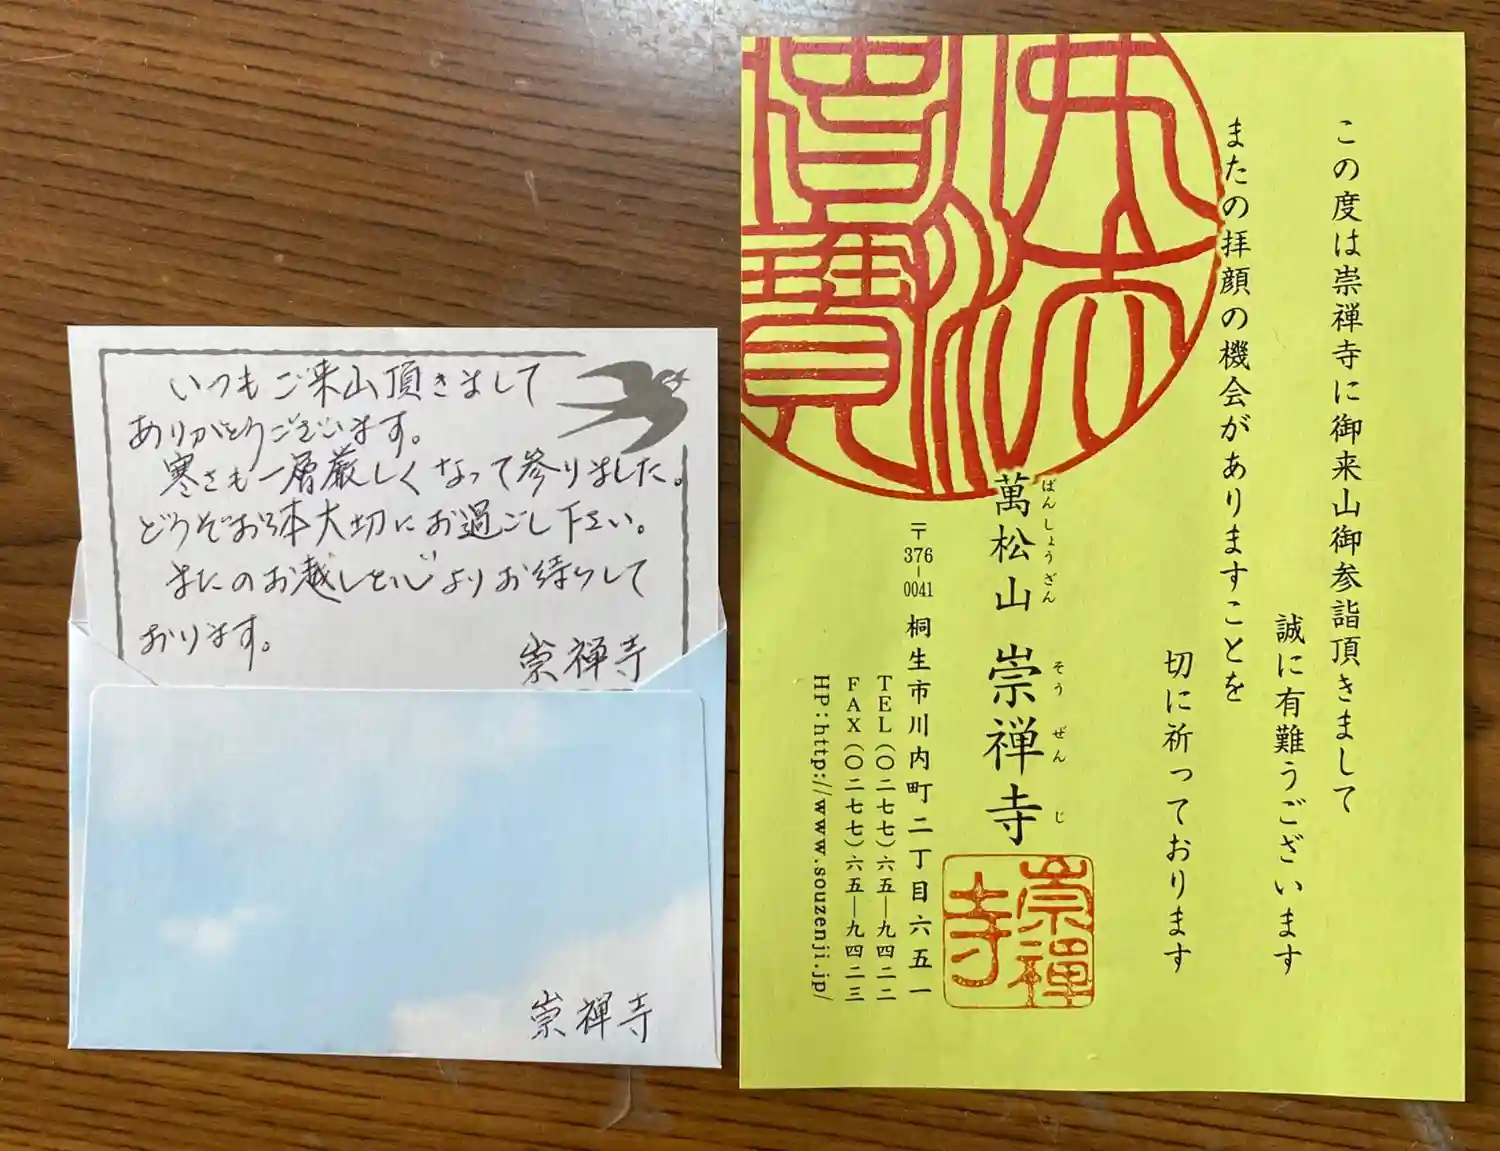 いつもご来山頂きまして
ありがとうございます。
寒さも一層厳しくなって参りました。
どうぞお体大切にお過ごし下さい。
またのお越しを心よりお待ちして
おります。
崇禅寺
崇禅寺
この度は崇禅寺に御来山御参詣頂きまして
誠に有難うございます
またの拝顔の機会がありますことを
切に祈っております
萬松山 崇禅寺
ばんしょうざん そうぜんじ
〒376-0041 桐生市川内町二丁目六五一
TEL(〇二七七)六五―九四二二
FAX(〇二七七)六五―九四二三
HP:http://www.souzenji.jp/
崇禅
寺